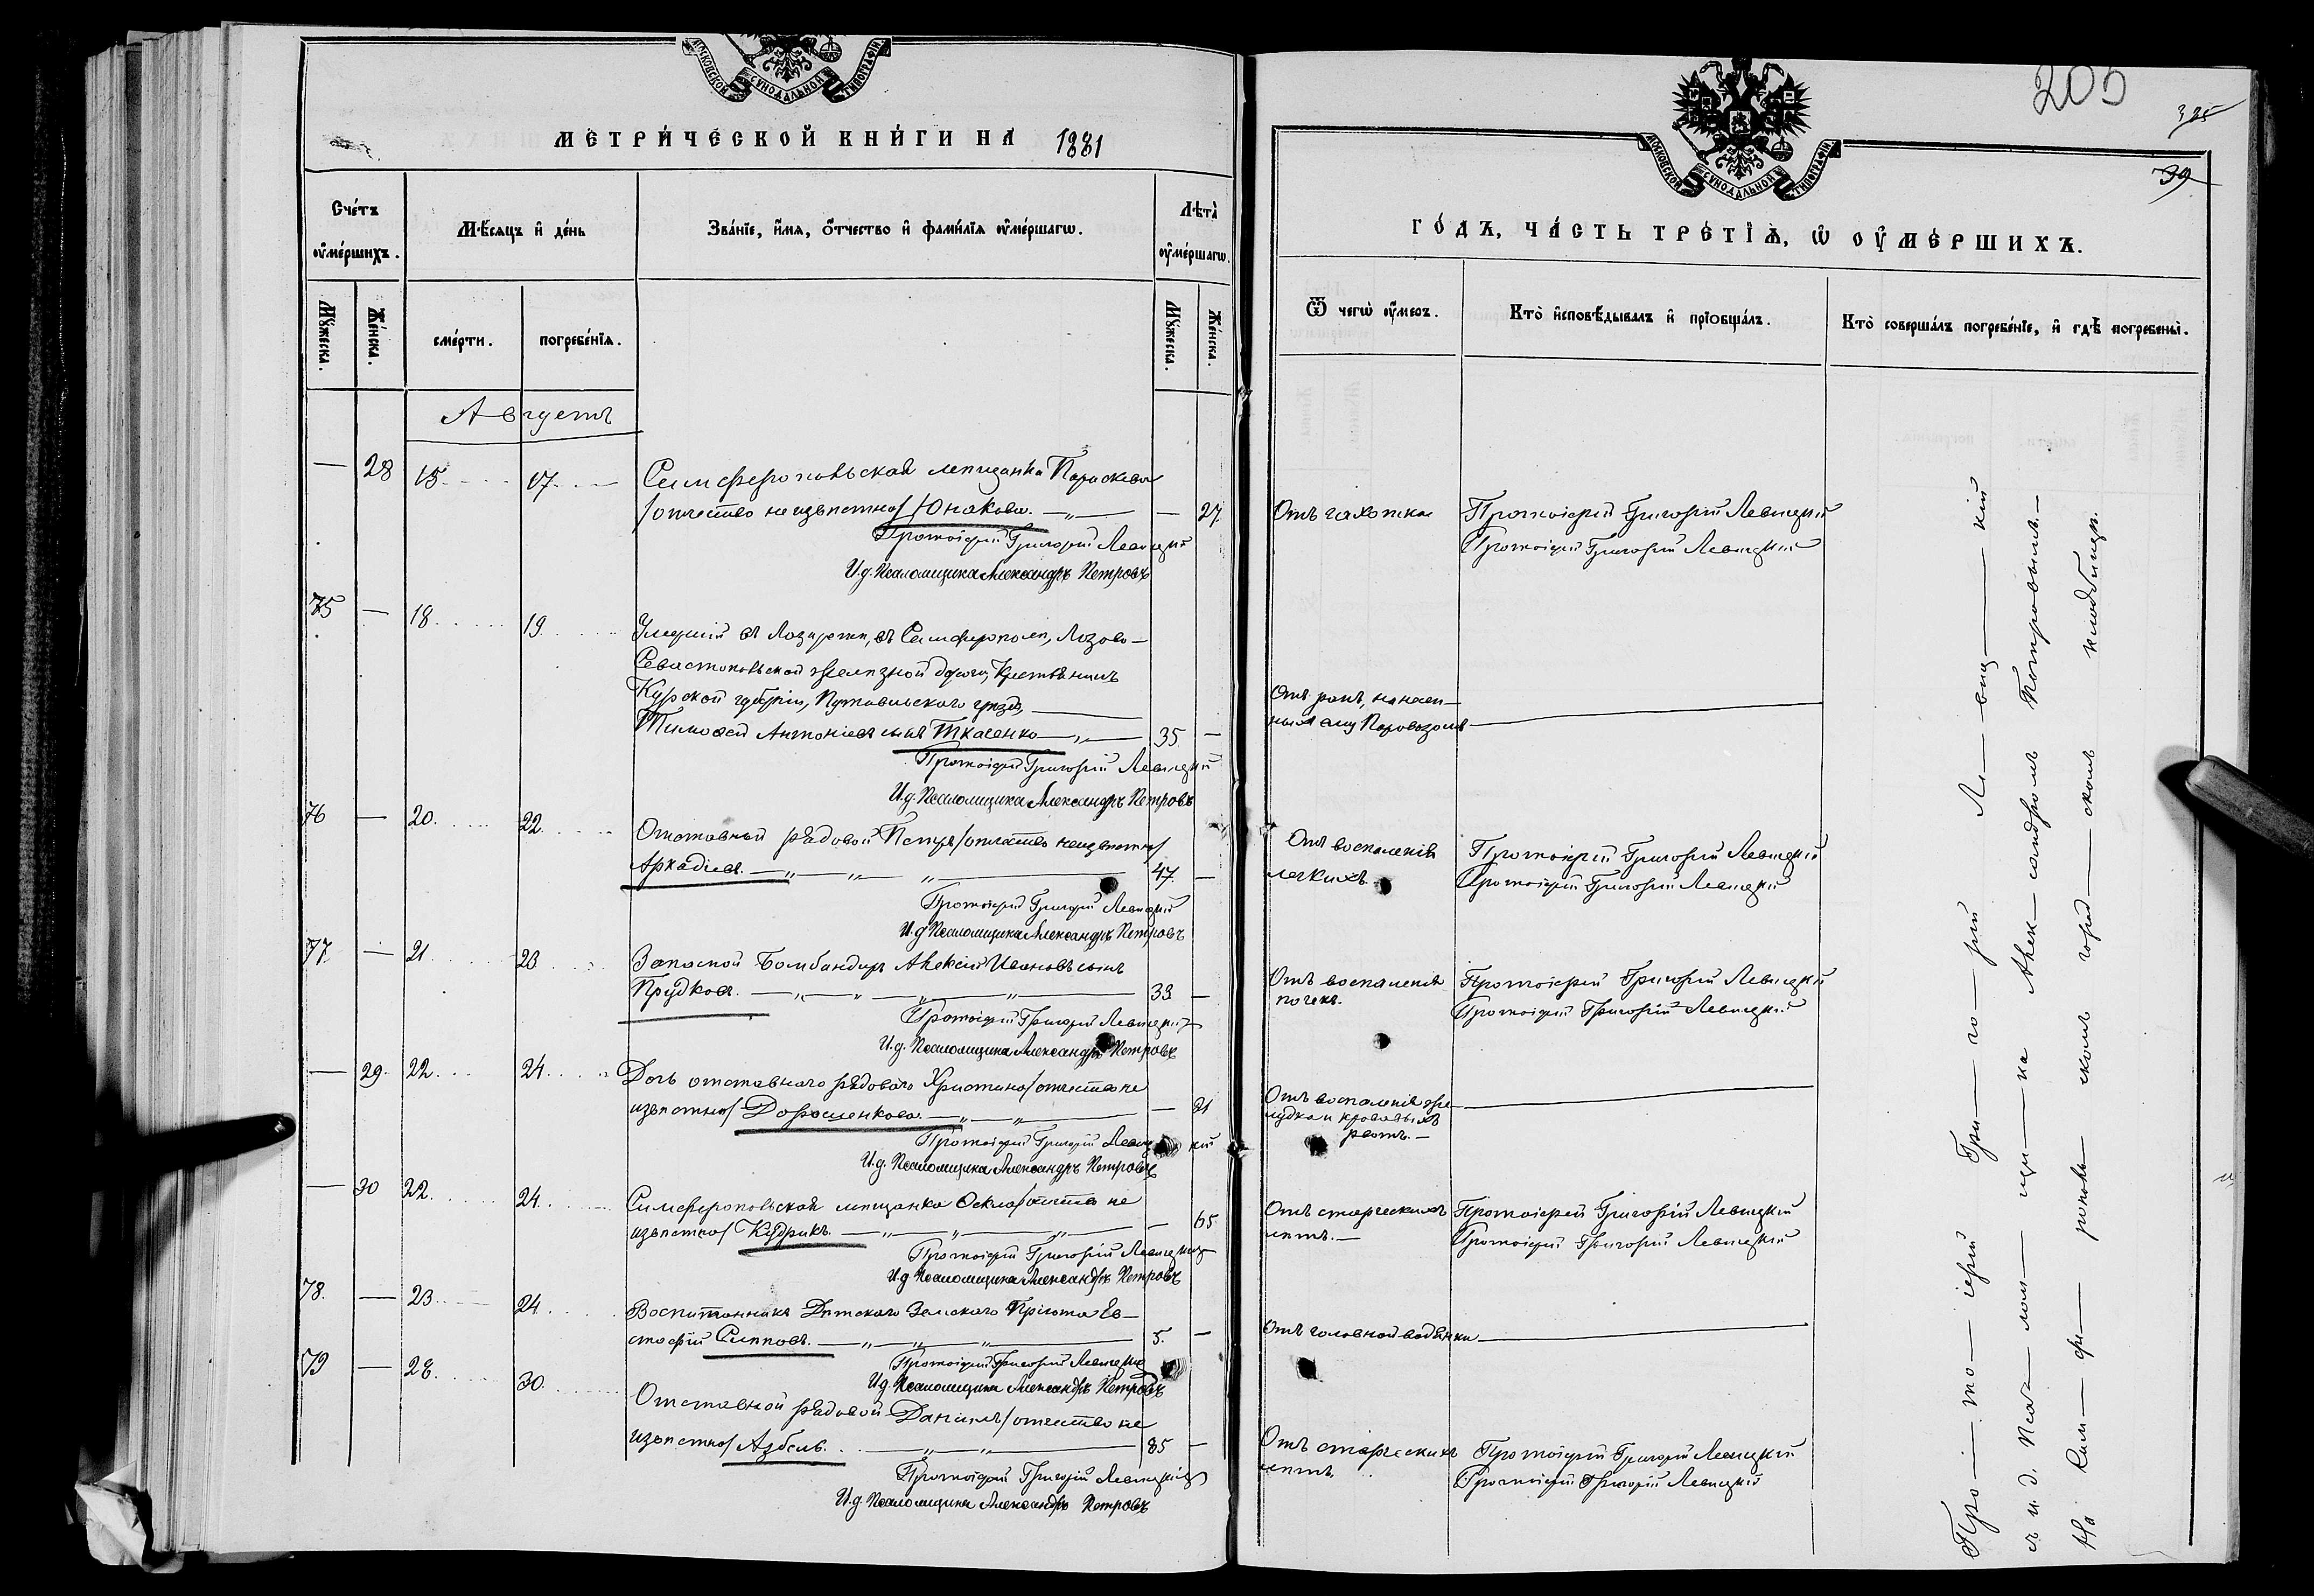 МОСКОВСКОЙ СУНОДАЛЬНОЙ ТИПОГРАФІИ
МЕТРИ́ЧЕСКОЙ КНИ́ГИ НА 1881
Сче́тъ ᲂу҆ме́ршихъ.
Мꙋ́жеска.
Же́нска.
Мѣ́сяцъ и҆ де́нь
сме́рти.
погребе́нїѧ.
Зва́нїе, и҆́мѧ, ѻ҆́тчество и҆ фами́лїѧ ᲂу҆ме́ршагѡ.
Лѣта̀ ᲂу҆ме́ршагѡ.
Мꙋ́жеска.
Же́нска.
Августъ
— 28 15. 17. Симферопольская мещанка Параскева
/отчество неизвѣстно/ Юнакова. — 27.
Протоіерей Григорій Левицкій
И.д. Псаломщика Александръ Петровъ
75 — 18. 19. Умершій въ Лазаретѣ, въ Симферополѣ, Лозово-
Севастопольской желѣзной дороги, Крестьянинъ
Курской губерніи, Путивльскаго уѣзда,
Тимофей Антоніевъ сынъ Ткаченко 35. —
Протоіерей Григорій Левицкій
И.д. Псаломщика Александръ Петровъ
76 — 20. 22. Отставной рядовой Петръ /отчество неизвѣстно/
Аркадіевъ. 47. —
Протоіерей Григорій Левицкій
И.д Псаломщика Александръ Петровъ
77. — 21. 23. Запасной Бомбандиръ Алексій Ивановъ сынъ
Прудковъ. 33. —
Протоіерей Григорій Левицкій
И.д. Псаломщика Александръ Петровъ
— 29. 22. 24. Дочь отставнаго рядоваго Христина /отчество не
извѣстно/ Дорошенкова. — 21
Протоіерей Григорій Левицкій
И.д. Псаломщика Александръ Петровъ
— 30 22. 24. Симферопольская мещанка Фекла /отчество не
извѣстно/ Кудрикъ. — 65
Протоіерей Григорій Левицкій
И.д Псаломщика Александръ Петровъ
78. — 23. 24. Воспитанникъ Дѣтскаго Земскаго Пріюта Ев-
стафій 5. —
Протоіерей Григорій Левицкій
И.д. Псаломщика Александръ Петровъ
79 — 28. 30. Отставной рядовой Даніилъ /отчество не
извѣстно/ 85 —
Протоіерей Григорій Левицкій
И.д. Псаломщика Александръ Петровъ
205
325
39
МОСКОВСКОЙ СУНОДАЛЬНОЙ ТИПОГРАФІИ
ГО́ДЪ, ЧА́СТЬ ТРЕ́ТЇѦ, Ѡ҆ ᲂУ҆МЕ́РШИХЪ.
Ѿ чегѡ̀ ᲂу҆́меръ.
Кто̀ и҆сповѣ́дывалъ и҆ прїѡбща́лъ.
Кто̀ соверша́лъ погребе́нїе, и҆ гдѣ̀ погребены̀.
Отъ чахотки Протоіерей Григорій Левицкій
Протоіерей Григорій Левицкій
Отъ ранъ, нанесен-
ныхъ ему Паровозомъ
Отъ воспаленія Протоіерей Григорій Левицкій
легкихъ. Протоіерей Григорій Левицкій
Отъ воспаленія Протоіерей Григорій Левицкій
почекъ. Протоіерей Григорій Левицкій
Отъ воспаленія же-
лудка и кровавыхъ
рвотъ. —
Отъ старческихъ Протоіерей Григорій Левицкій
лѣтъ. — Протоіерей Григорій Левицкій
Отъ головной водянки
Отъ старческихъ Протоіерей Григорій Левицкій
лѣтъ. Протоіерей Григорій Левицкій
Про — то — іерей Гри — го — рій Ле — виц — кій
съ и.д. Псал — лом — щи — ка Алек — сандромъ Петровымъ. —
На Сим — фе — рополь — скомъ город — скомъ кладбищѣ.